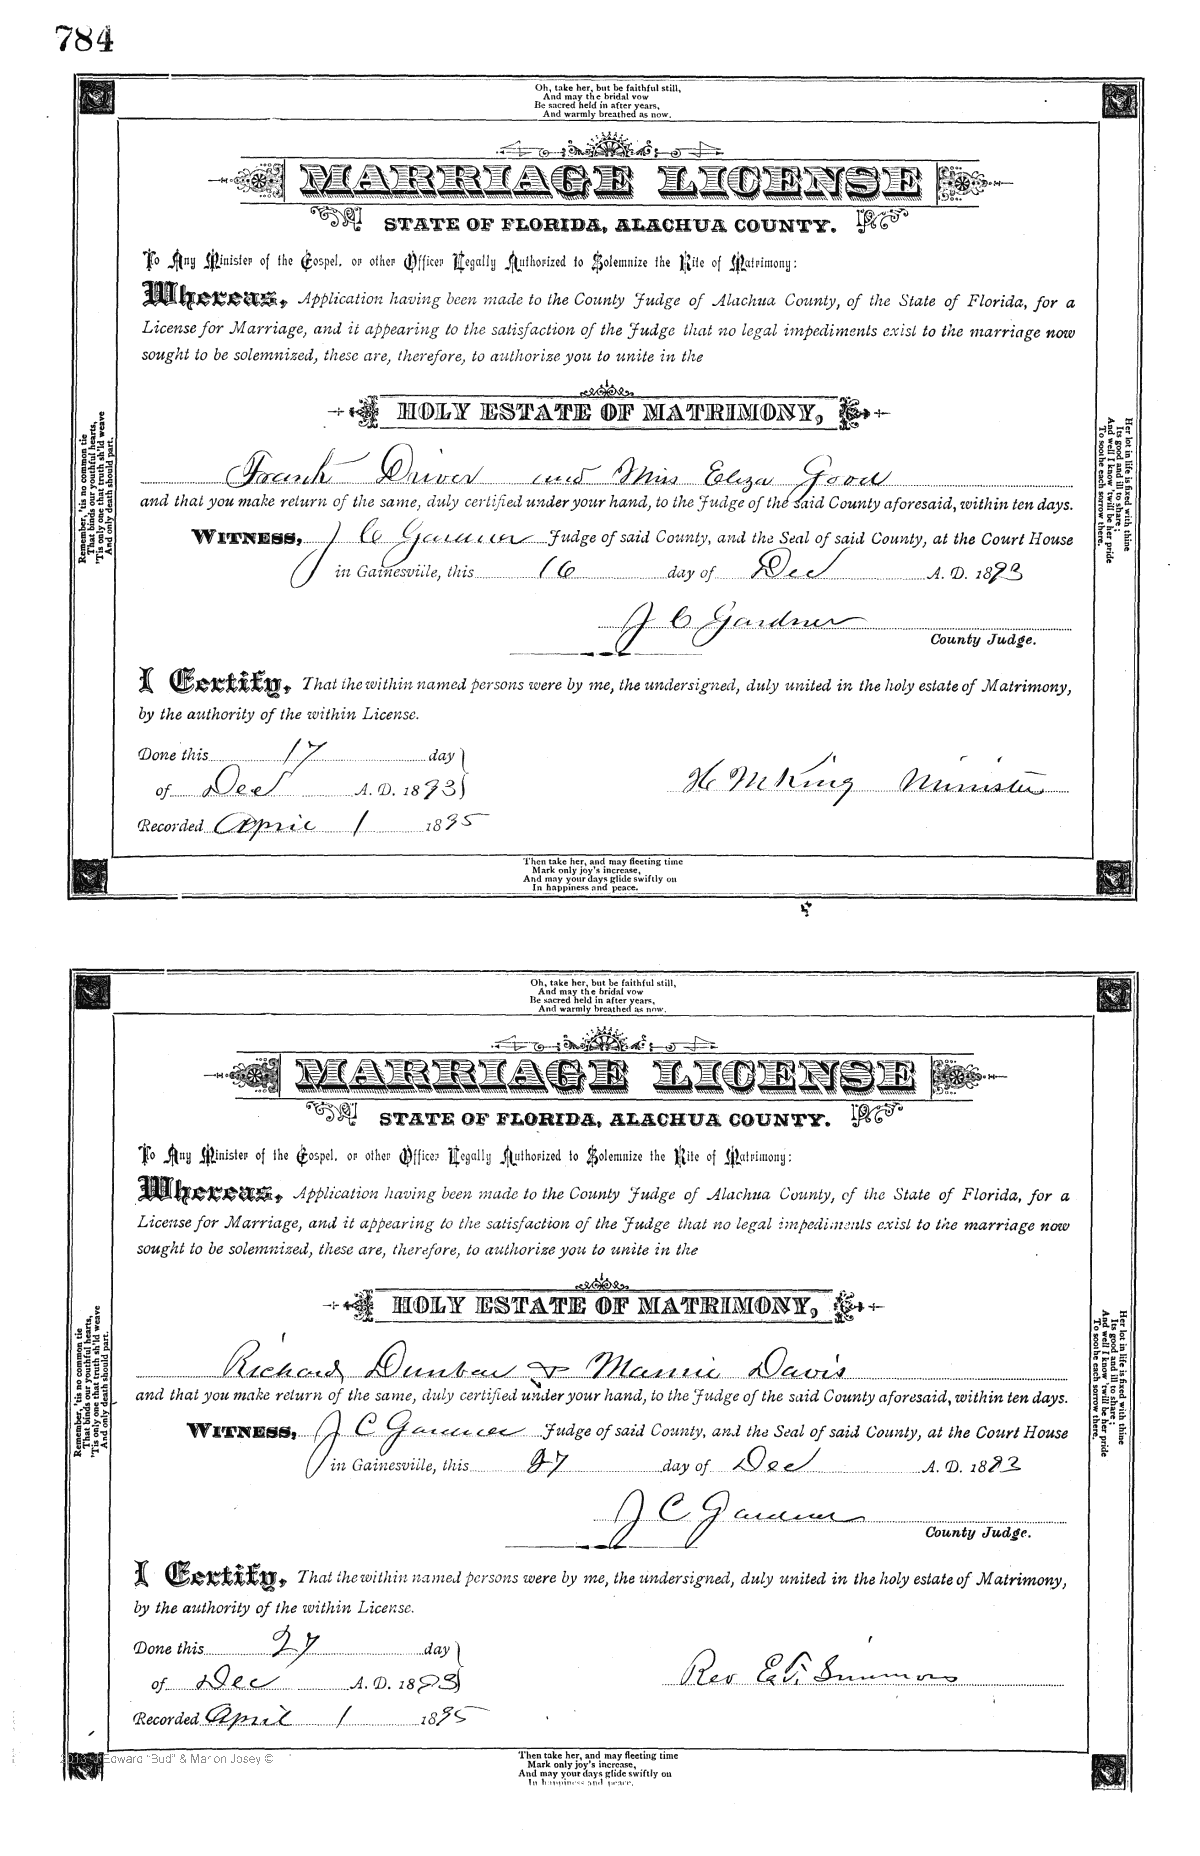 784
Oh, take her, but be faithful still,
And may the bridal vow
Be sacred held in after years,
And warmly breathed as now.
MARRIAGE LICENSE
STATE OF FLORIDA, ALACHUA COUNTY.
To Any Minister of the Gospel, or other Officer Legally Authorized to Solemnize the Rite of Matrimony:
Whereas, Application having been made to the County Judge of Alachua County, of the State of Florida, for a
License for Marriage, and it appearing to the satisfaction of the Judge that no legal impediments exist to the marriage now
sought to be solemnized, these are, therefore, to authorize you to unite in the
HOLY ESTATE OF MATRIMONY,
Frank Driver and Miss Eliza Good
and that you make return of the same, duly certified under your hand, to the Judge of the said County aforesaid, within ten days.
WITNESS, J C Gardner Judge of said County, and the Seal of said County, at the Court House
in Gainesville, this 16 day of Dec A. D. 1893
J C Gardner
County Judge.
I Certify, That the within named persons were by me, the undersigned, duly united in the holy estate of Matrimony,
by the authority of the within License.
Done this 17 day
of Dec A. D. 1893
H M King Minister
Recorded April 1 1895
Remember, 'tis no common tie
That binds our youthful hearts,
'Tis only one that truth sh'ld weave
And only death should part.
Her lot in life is fixed with thine
Its good and ill to share;
And well I know 'twill be her pride
To soothe each sorrow there.
Then take her, and may fleeting time
Mark only joy's increase,
And may your days glide swiftly on
In happiness and peace.
Oh, take her, but be faithful still,
And may the bridal vow
Be sacred held in after years,
And warmly breathed as now.
MARRIAGE LICENSE
STATE OF FLORIDA, ALACHUA COUNTY.
To Any Minister of the Gospel, or other Officer Legally Authorized to Solemnize the Rite of Matrimony:
Whereas, Application having been made to the County Judge of Alachua County, of the State of Florida, for a
License for Marriage, and it appearing to the satisfaction of the Judge that no legal impediments exist to the marriage now
sought to be solemnized, these are, therefore, to authorize you to unite in the
HOLY ESTATE OF MATRIMONY,
Richard Dunbar & Mamie Davis
and that you make return of the same, duly certified under your hand, to the Judge of the said County aforesaid, within ten days.
WITNESS, J C Gardner Judge of said County, and the Seal of said County, at the Court House
in Gainesville, this 27 day of Dec A. D. 1893
J C Gardner
County Judge.
I Certify, That the within named persons were by me, the undersigned, duly united in the holy estate of Matrimony,
by the authority of the within License.
Done this 27 day
of Dec A. D. 1893
Rev Simmons
Recorded April 1 1895
Remember, 'tis no common tie
That binds our youthful hearts,
'Tis only one that truth sh'ld weave
And only death should part.
Her lot in life is fixed with thine
Its good and ill to share;
And well I know 'twill be her pride
To soothe each sorrow there.
Edward "Bud" & Marion Josey ©
Then take her, and may fleeting time
Mark only joy's increase,
And may your days glide swiftly on
In happiness and peace.